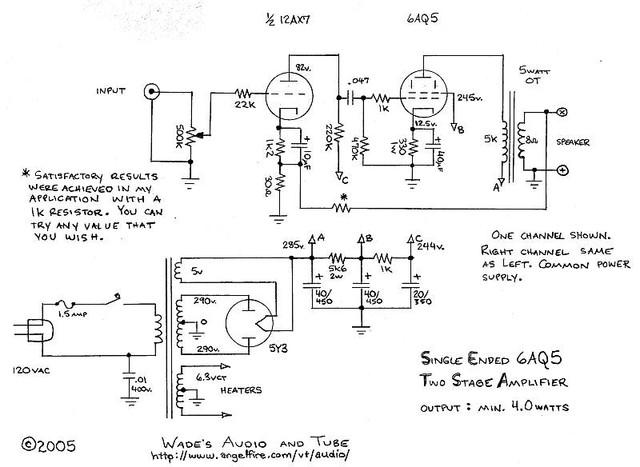 ½ 12AX7
6AQ5
INPUT
500K
22K
82V.
1K2
10µF
30Ω
220K
C
.047
1K
470K
12.5V.
330
1W
40µF
245V.
B
5WATT
OT
5K
A
8Ω
SPEAKER
*
* SATISFACTORY RESULTS
WERE ACHIEVED IN MY
APPLICATION WITH A
1K RESISTOR. YOU CAN
TRY ANY VALUE THAT
YOU WISH.
ONE CHANNEL SHOWN.
RIGHT CHANNEL SAME
AS LEFT. COMMON POWER
SUPPLY.
285V.
A
5K6
2W
B
1K
C
244V.
40/
450
40/
450
20/
350
5V
290V.
0
290V.
5Y3
6.3VCT
HEATERS
1.5AMP
120VAC
.01
400V.
SINGLE ENDED 6AQ5
TWO STAGE AMPLIFIER
OUTPUT : MIN. 4.0WATTS
©2005
WADE'S AUDIO AND TUBE
http://www.angelfire.com/vt/audio/